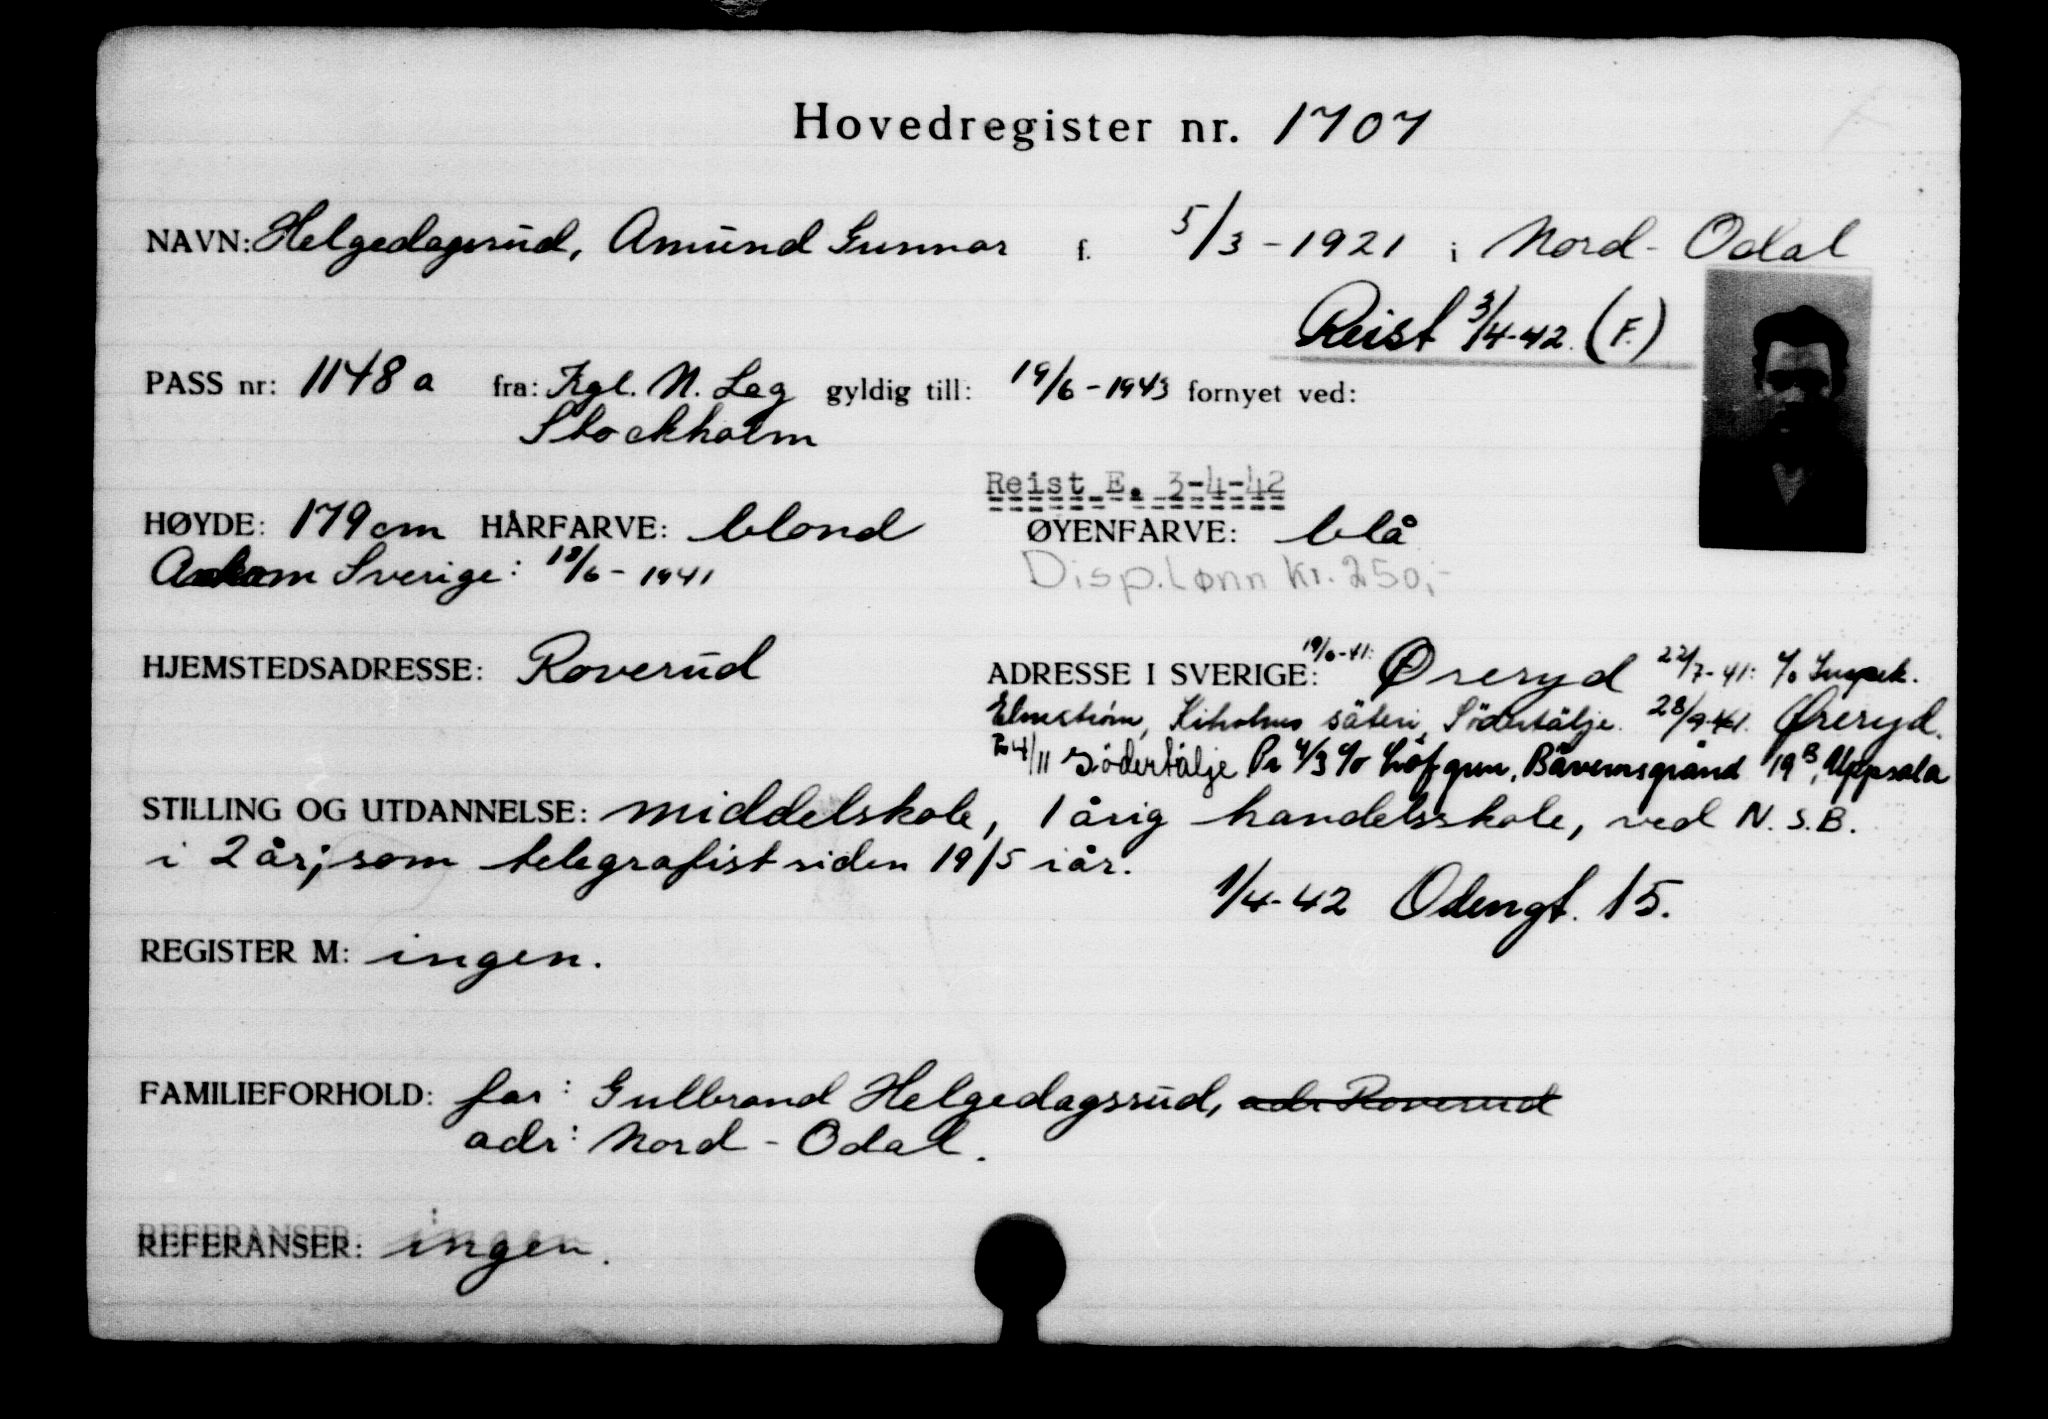 Hovedregister nr. 1707
NAVN: Helgedagsrud, Amund Gunnar f. 5/3-1921 i Nord-Odal
Reist 3/4-42. (F.)
PASS nr: 1148a fra: Kgl. N. Leg gyldig till: 19/6-1943 fornyet ved:
Stockholm
Reist E. 3-4-42
HØYDE: 179 cm HÅRFARVE: blond ØYENFARVE: blå
Ankom Sverige: 18/6-1941 Disp.Lønn kr. 250,-
HJEMSTEDSADRESSE: Roverud ADRESSE I SVERIGE: 19/6-41: Øreryd 22/7-41: c/o Inspek.
Elmstrøm, säteri, Södertälje. 28/9-41. Øreryd.
4/11 Södertälje Pr 4/3 c/o Löfgren, 19B, Uppsala
STILLING OG UTDANNELSE: middelskole, 1 årig handelsskole, ved N.S.B.
i 2 år; som telegrafist siden 19/5 i år.
1/4-42 Odengt. 15.
REGISTER M: ingen.
FAMILIEFORHOLD: far: Gulbrand Helgedagsrud, adr Roverud
adr: Nord-Odal.
REFERANSER: ingen.